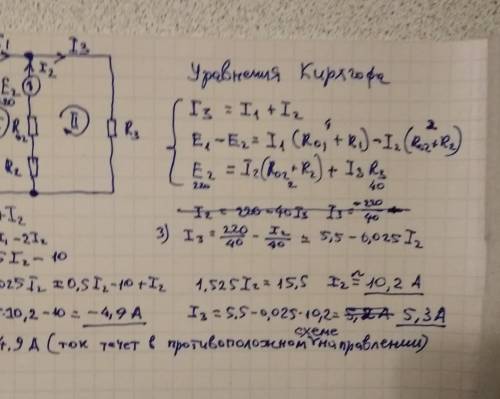 I₁ I₃
I₂
E₂
220
R₀₂ II R₃
R₂
Уравнения Кирхгофа
I₃ = I₁ + I₂
E₁ - E₂ = I₁ (R₀₁ + R₁) - I₂ (R₀₂ + R₂)
4 2
E₂ = I₂ (R₀₂ + R₂) + I₃ R₃
220 2 40
I₂ = 220 - 40 I₃ I₃ = -220/40
3) I₃ = 220/40 - I₂/40 = 5,5 - 0,025 I₂
+ I₂
I₁ - 2I₂
5I₂ - 10
025 I₂ = 0,5 I₂ - 10 + I₂ 1,525 I₂ = 15,5 I₂ ≈ 10,2 A
·10,2 - 10 = -4,9 A I₃ = 5,5 - 0,025·10,2 = 5,3 A
4,9 A (ток течет в противоположном схеме направлении)